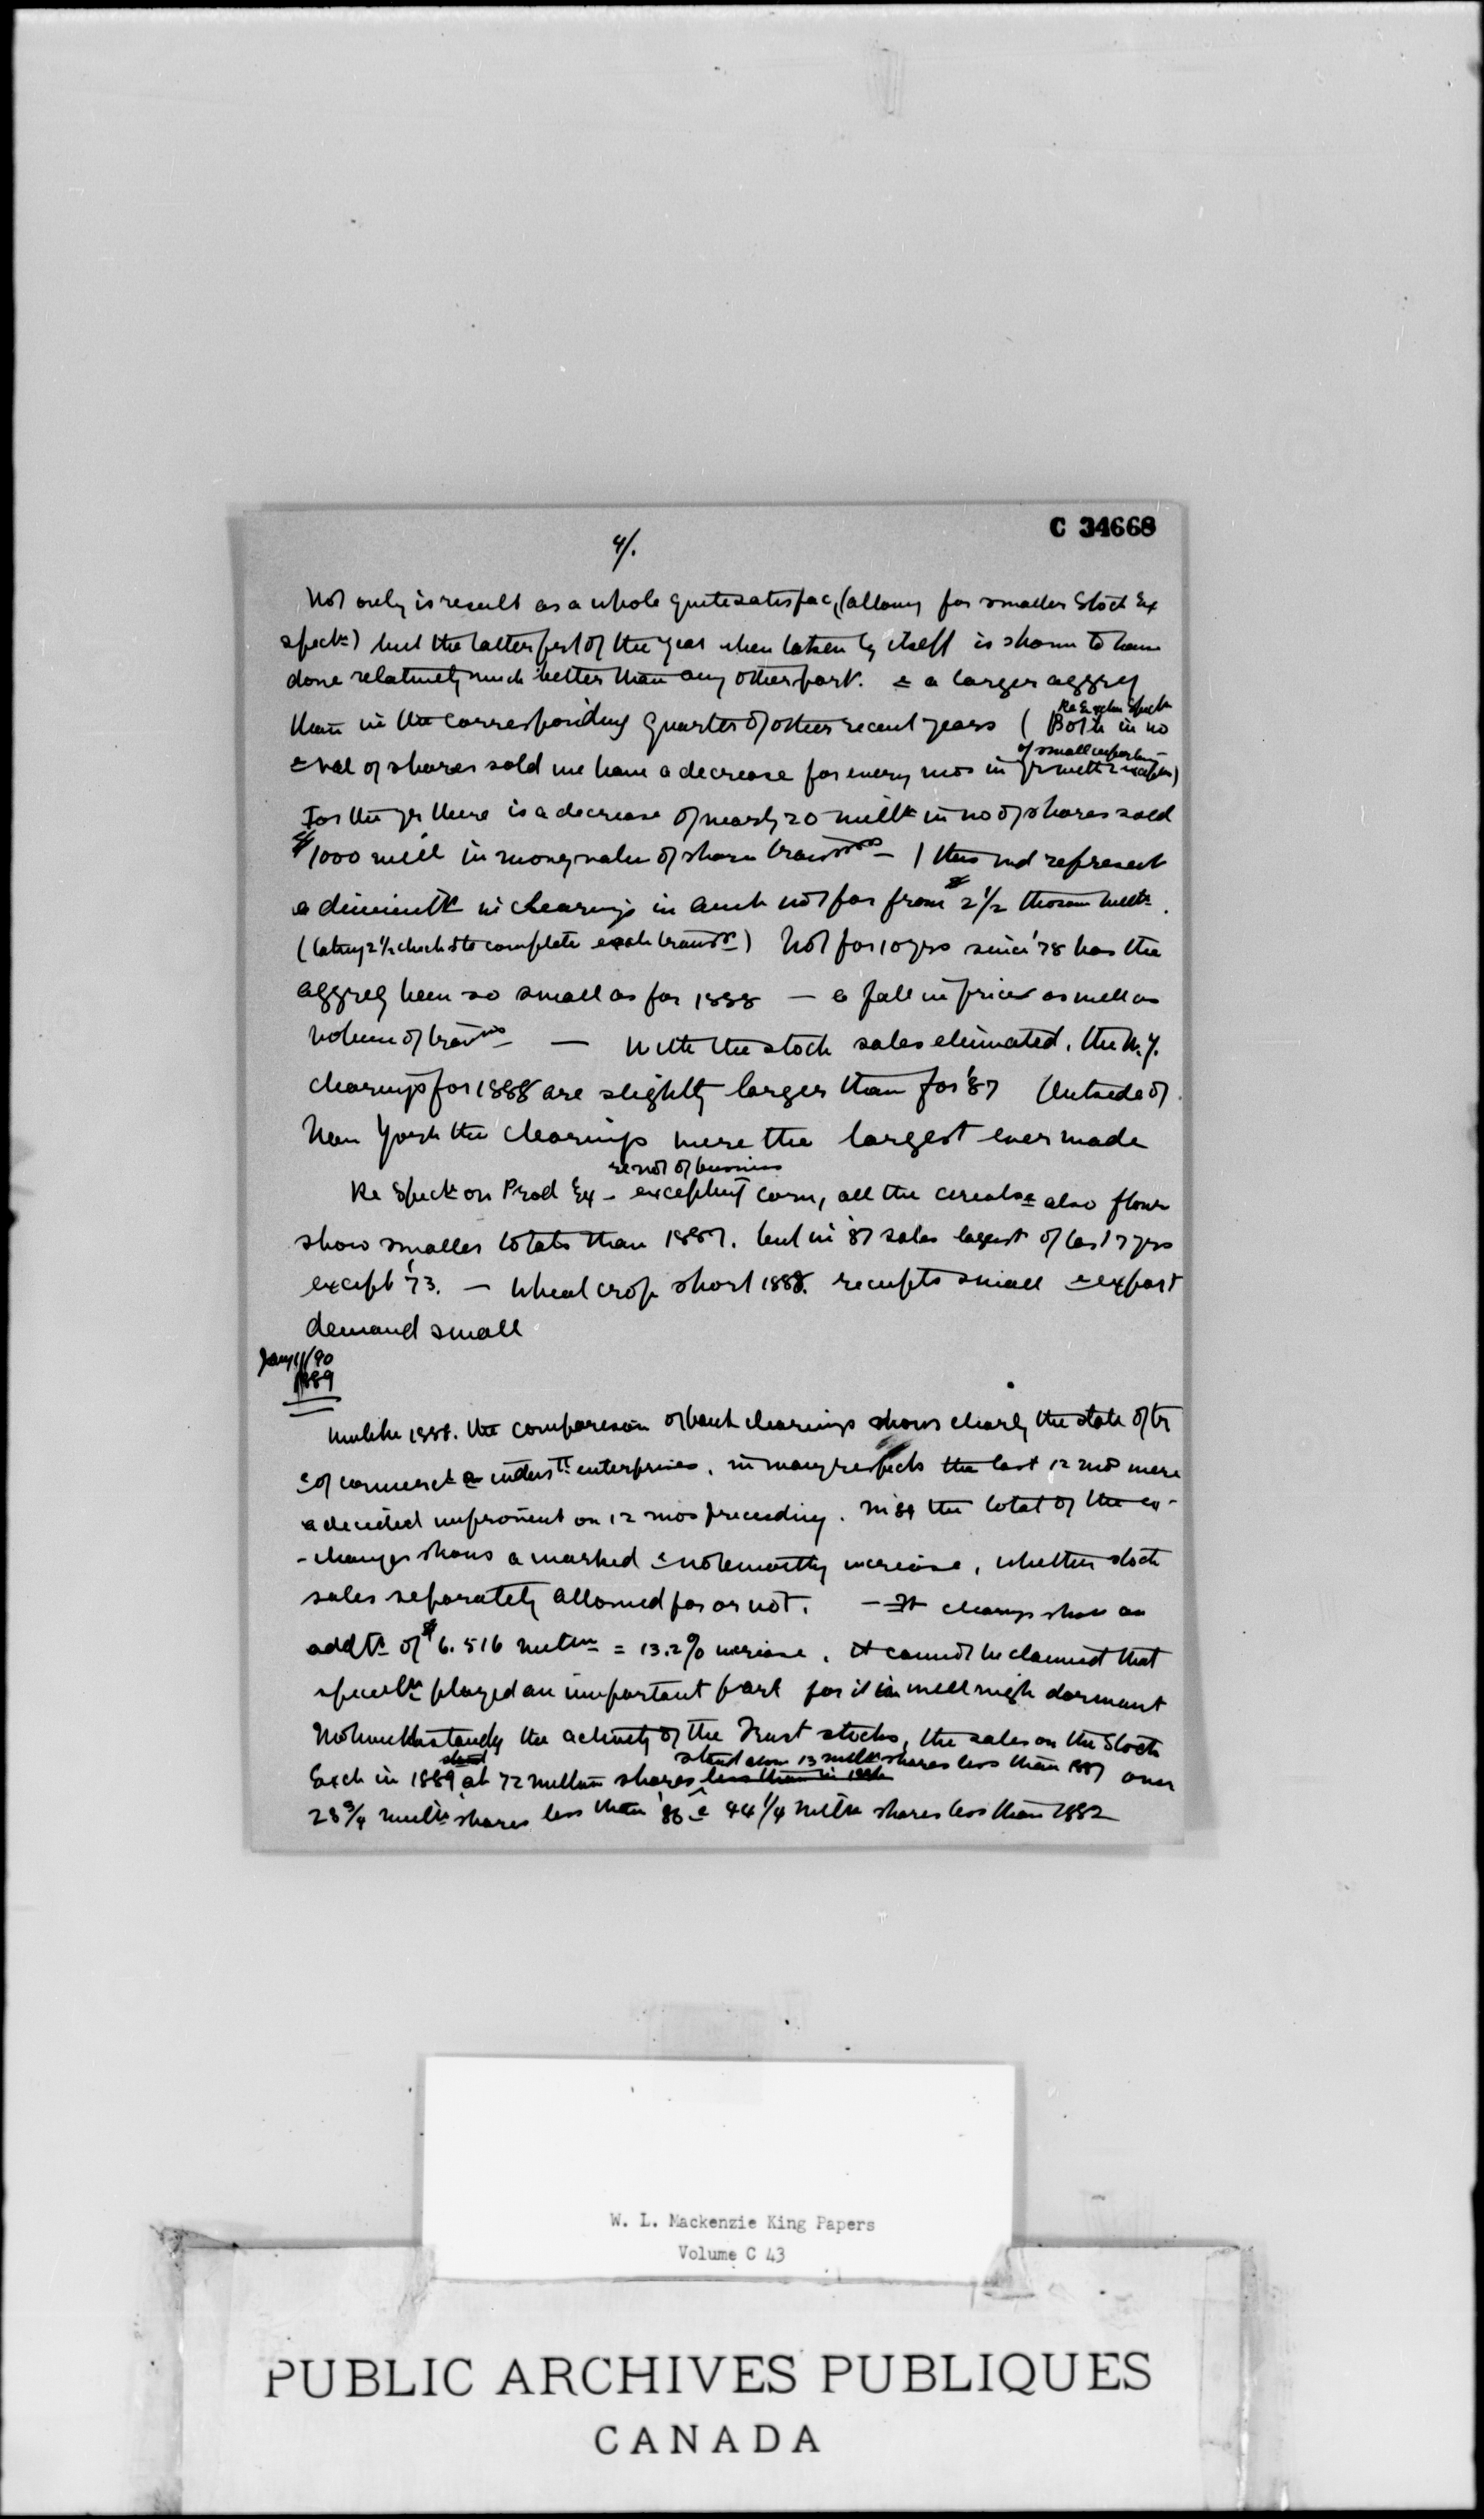 C 34668
4/.
Not only is result as a whole quite satisfac, (allowg for smaller Stock Ex
specln) but the latter part of the year when taken by itself is shown to have
done relatively much better than any other part. & a larger aggreg
than in the corresponding quarter of other recent years ( Both in no
& val of shares sold we have a decrease for every mos in yr with 2
of small
For the yr there is a decrease of nearly 20 milln in no of shares sold
& $1000 mill in money value of share transns – | this wd represent
a diminutn in clearings in amt not far from $2 1/2 thousand millns.
(taking 2 1/2 checks to complete each transn) Not for 10 yrs since '78 has the
aggreg been so small as for 1888 — a fall in prices as well as
volume of transns — With the stock sales eliminated, the N.Y.
clearings for 1888 are slightly larger than for '87 Outside of
New York the clearings were the largest ever made
re vol of business
Re Specln on Prod Ex – excepting corn, all the cereals & also flour
show smaller totals than 1887. but in '87 sales largest of last 7 yrs
except '73. — Wheat crop short 1888. receipts small & export
demand small
Jany 11/90
1889
Unlike 1888. the comparison of bank clearings shows clearly the state of tr
& of commercl & industl enterprises. in many respects the last 12 mos were
a decided improvent on 12 mos preceeding. in '89 the total of the ex-
-changes shows a marked & noteworthy increase, whether stock
sales separately allowed for or not. — clearings show an
addtn of $6.516 millns = 13.2% increase. It cannot be claimed that
speculn played an important part for it in well nigh dormant
Notwithstandg the activity of the Trust stocks, the sales on the Stock
stand over 13 milln shares less than 1887
Exch in 1889 at 72 million shares less than in over
28 3/4 milln shares less than '86 & 44 1/4 milln shares less than 1882
W. L. Mackenzie King Papers
Volume C 43
PUBLIC ARCHIVES PUBLIQUES
CANADA